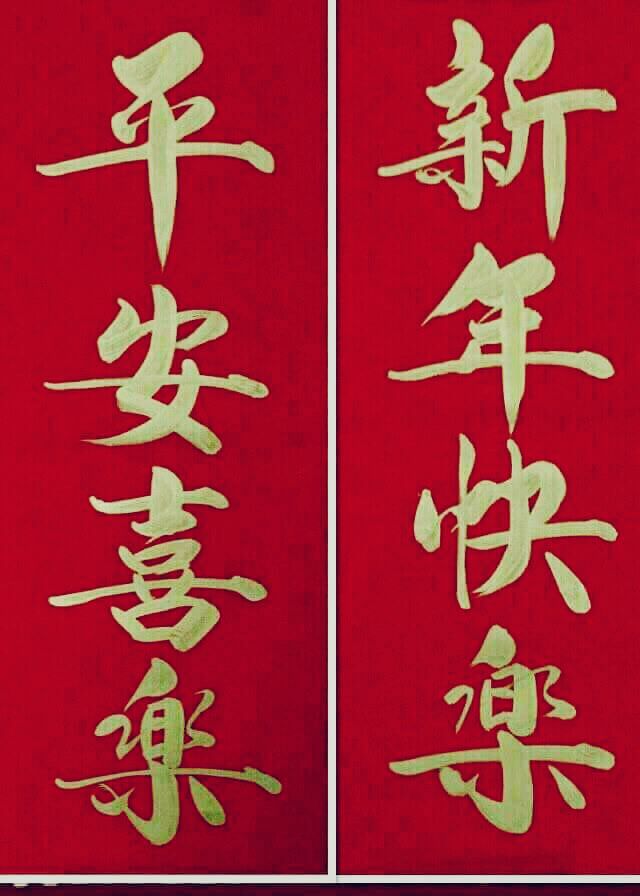 新年快樂
平安喜樂